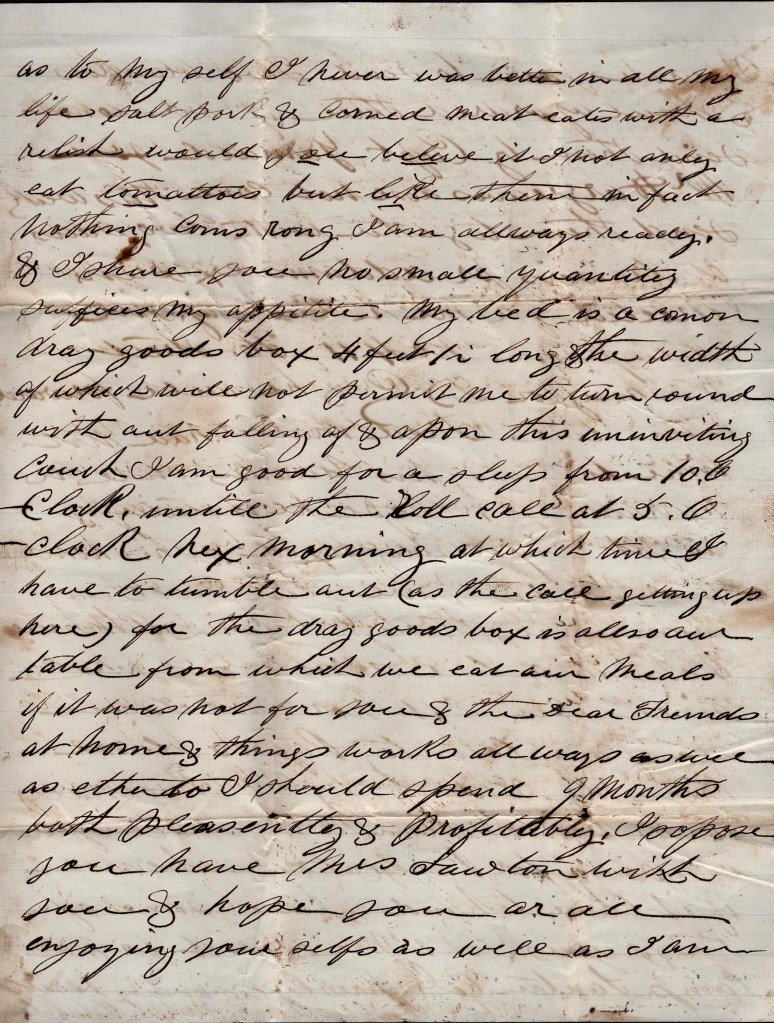 as to my self I never was better in all my
life salt pork & corned meat eates with a
relish would you beleve it I not only
eat tomattoes but like them in fact
nothing coms rong I am allways ready.
& I shure you no small quantity
suffices my appitite. My bed is a comon
dray goods box 4 feet 1/2 long & the width
of which will not permit me to turn round
with aut falling of & apon this uninviting
couch I am good for a sleep from 10.O
Clock, untill the Roll call at 5.O
clock nex morning at which time I
have to tumble aut (as the call getting up
here) for the dray goods box is allso aur
table from which we eat aur meals
if it was not for you & the Dear Freinds
at home & things works allways as well
as etherto I should spend 9 months
both pleasently & Profitably. I sopose
you have Mrs Lawton with
you & hope you ar all
enjoying your selfs as well as I am